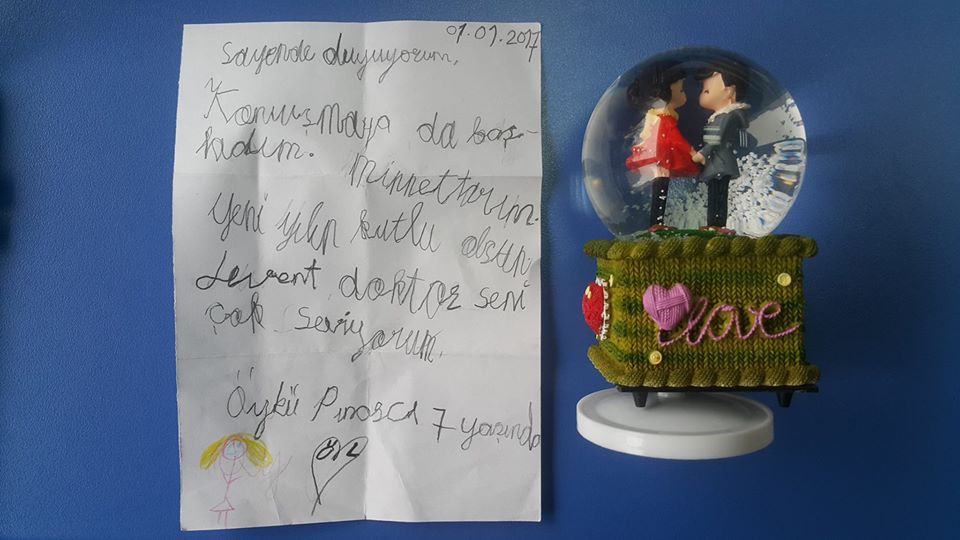 01.01.2017
Sayende duyuyorum.
Konuşmaya da baş-
ladım.
Minnettarım.
Yeni yılın kutlu olsun
Levent doktor seni
çok seviyorum.
Öykü 7 yaşında
love